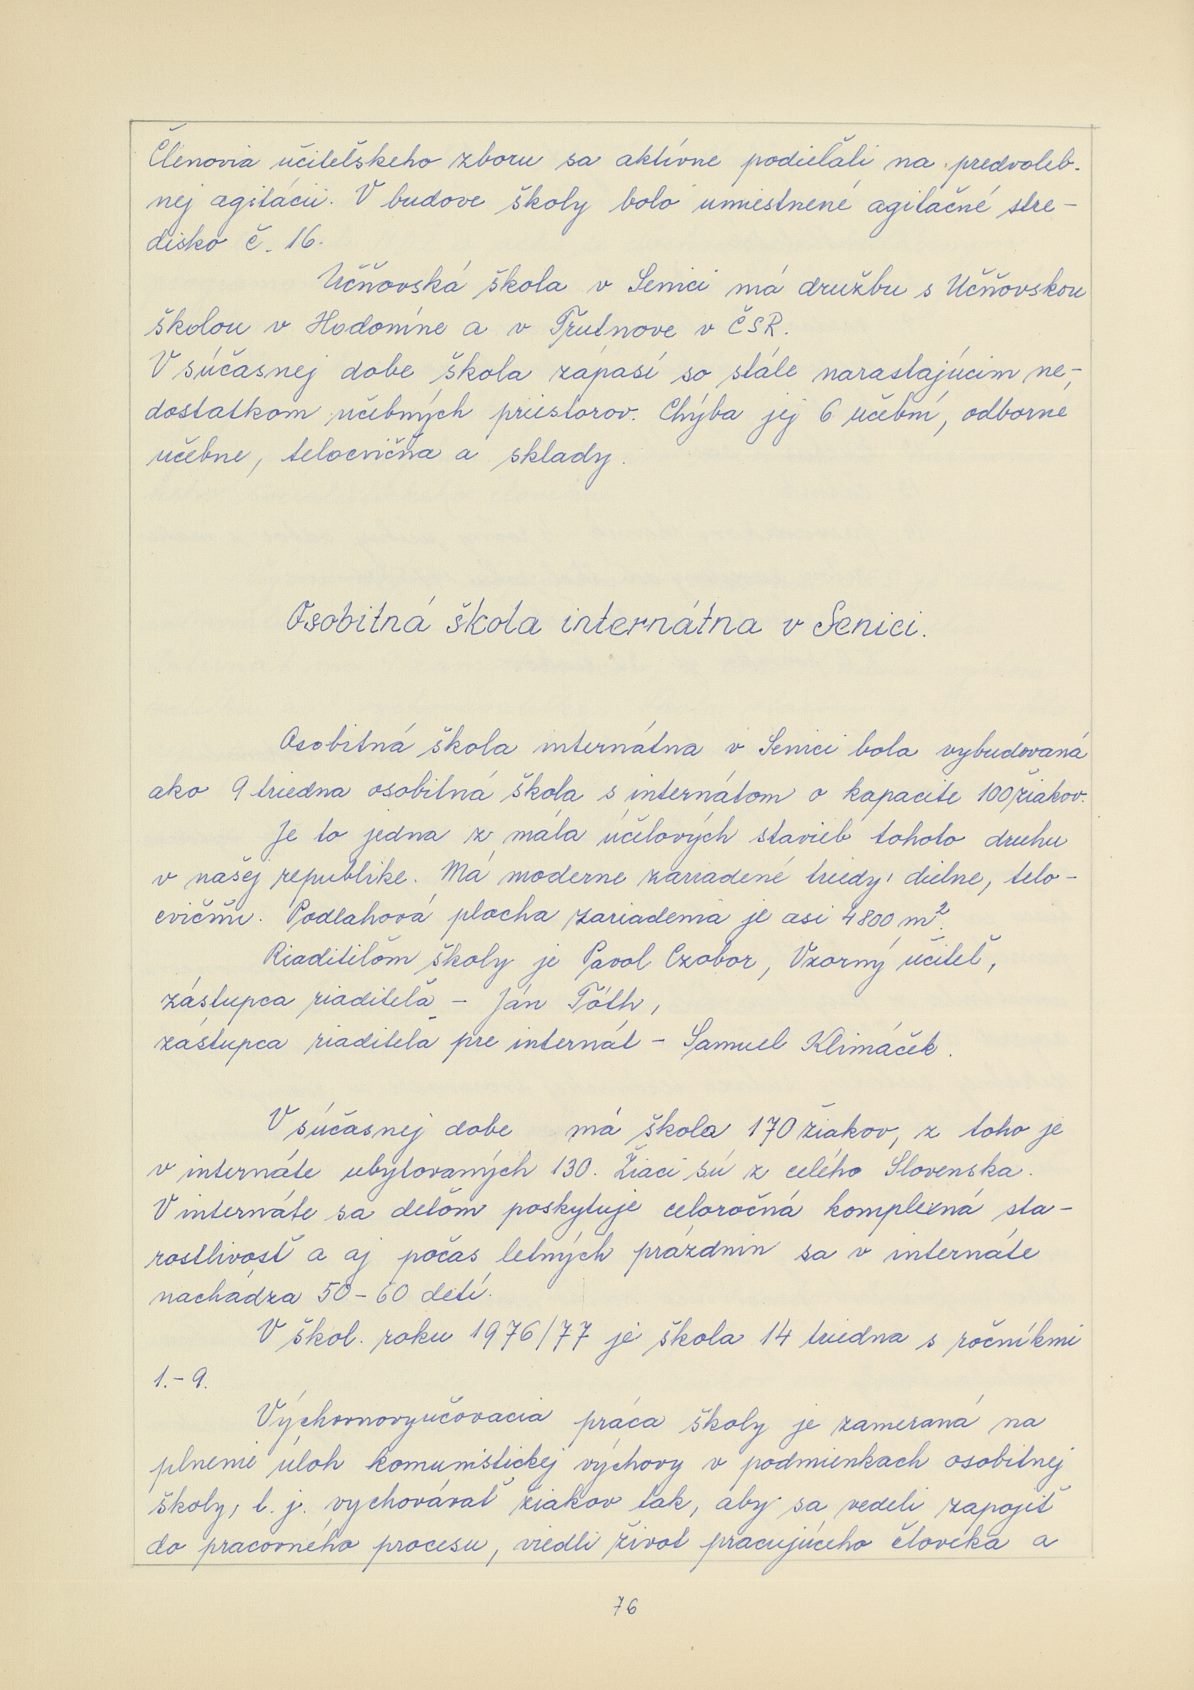 Členovia učiteľskeho zboru sa aktívne podieľali na predvoleb-
nej agitácii. V budove školy bolo umiestnené agitačné stre-
disko č. 16.
Učňovská škola v Senici má družbu s Učňovskou
školou v Hodoníne a v Trutnove v ČSR.
V súčasnej dobe škola zápasí so stále narastajúcim ne-
dostatkom učebných priestorov. Chýba jej 6 učební, odborné
učebne, telocvičňa a sklady.
Osobitná škola internátna v Senici.
Osobitná škola internátna v Senici bola vybudovaná
ako 9 triedna osobitná škola s internátom o kapacite 100 žiakov.
Je to jedna z mála účelových stavieb tohoto druhu
v našej republike. Má moderne zariadené triedy, dielne, telo-
cvičňu. Podlahová plocha zariadenia je asi 4800 m².
Riaditeľom školy je Pavol Czobor, Vzorný učiteľ,
zástupca riaditeľa - Ján Tóth,
zástupca riaditeľa pre internát - Samuel Klimáček.
V súčasnej dobe má škola 170 žiakov, z toho je
v internáte ubytovaných 130. Žiaci sú z celého Slovenska.
V internáte sa deťom poskytuje celoročná komplexná sta-
rostlivosť a aj počas letných prázdnin sa v internáte
nachádza 50-60 detí.
V škol. roku 1976/77 je škola 14 triedna s ročníkmi
1.-9.
Výchovnovyučovacia práca školy je zameraná na
plnenie úloh komunistickej výchovy v podmienkach osobitnej
školy, t. j. vychovávať žiakov tak, aby sa vedeli zapojiť
do pracovného procesu, viedli život pracujúceho človeka a
76